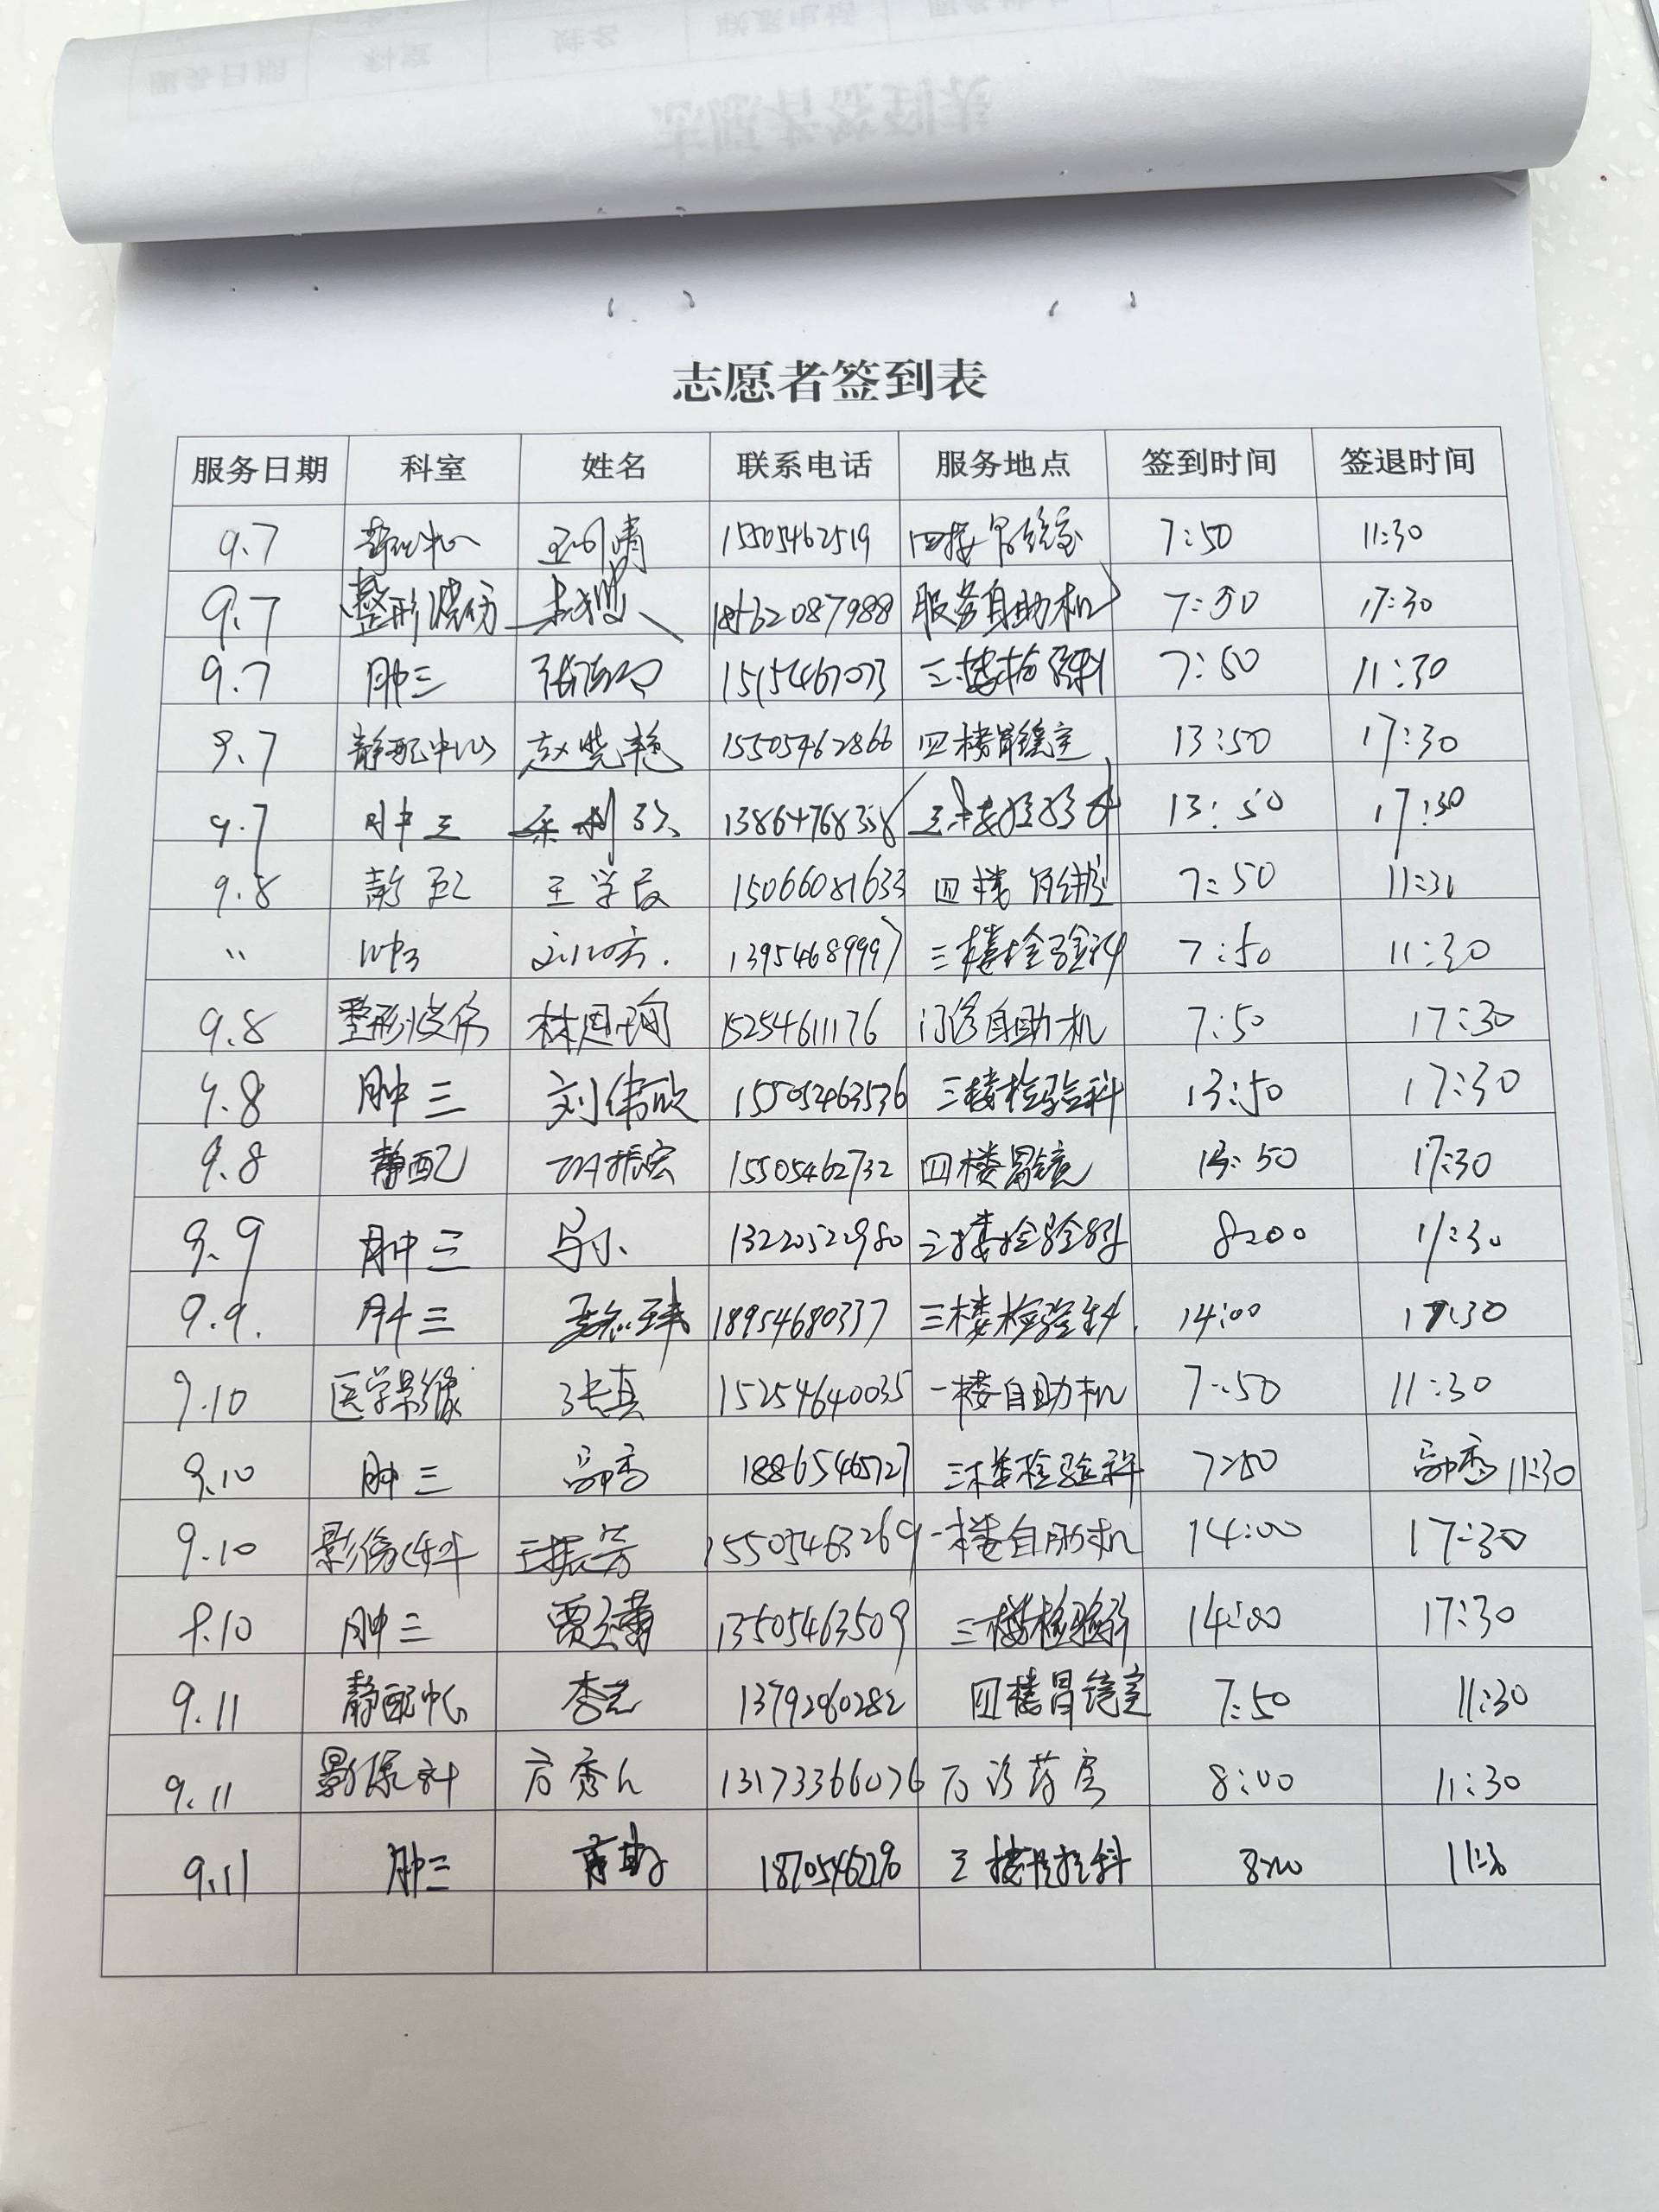 志愿者签到表
服务日期 科室 姓名 联系电话 服务地点 签到时间 签退时间
9.7 静配中心 15505462519 四楼胃镜室 7:50 11:30
9.7 整形烧伤 18562087988 服务自助机 7:50 17:30
9.7 肿三 三楼检验科 7:50 11:30
9.7 静配中心 赵晓艳 15505462866 四楼胃镜室 13:50 17:30
9.7 肿三 13864768358 三楼检验科 13:50 17:30
9.8 静配 王学良 15066081633 四楼胃镜室 7:50 11:30
〃 肿3 13954689997 三楼检验科 7:50 11:30
9.8 整形烧伤 林思询 15254611176 门诊自助机 7:50 17:30
9.8 肿三 刘伟欣 15505463536 三楼检验科 13:50 17:30
9.8 静配 振宏 15505462732 四楼胃镜 13:50 17:30
9.9 肿三 13220522980 三楼检验科 8:00 11:30
9.9. 肿三 18954680337 三楼检验科. 14:00 17:30
9.10 医学影像 张真 15254640035 一楼自助机 7:50 11:30
9.10 肿三 18865465727 三楼检验科 7:50 11:30
9.10 影像科 王振芳 15505463269 一楼自助机 14:00 17:30
9.10 肿三 13505463509 三楼检验科 14:00 17:30
9.11 静配中心 13792960282 四楼胃镜室 7:50 11:30
9.11 影像科 13173366076 门诊药房 8:00 11:30
9.11 肿三 18705462290 三楼检验科 8:00 11:30